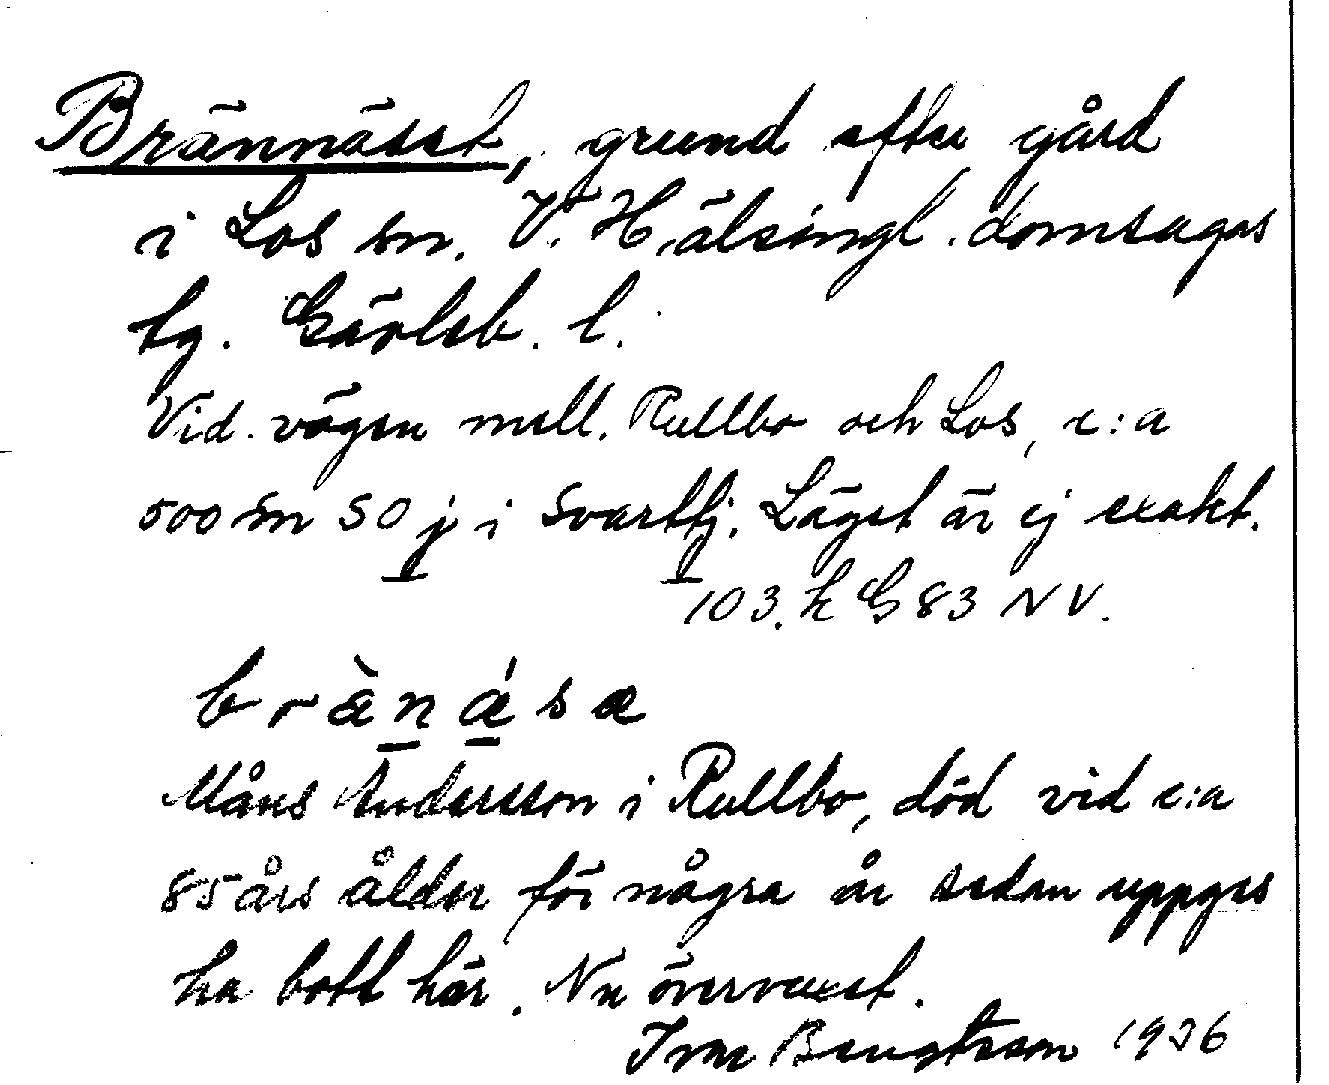 Brännäset, grund efter gård
i Los sn. V. Hälsingl. domsagas
tg. Gävleb. l.
Vid vägen mell. Rullbo och Los, c:a
500 m SO j i Svarttj. Läget är ej exakt.
103. h G 83 NV.
brànǻsa
Måns Andersson i Rullbo, död vid c:a
85 års ålder för några år sedan uppges
ha bott här. Nu övervuxet.
Ivar Bengtsson 1936